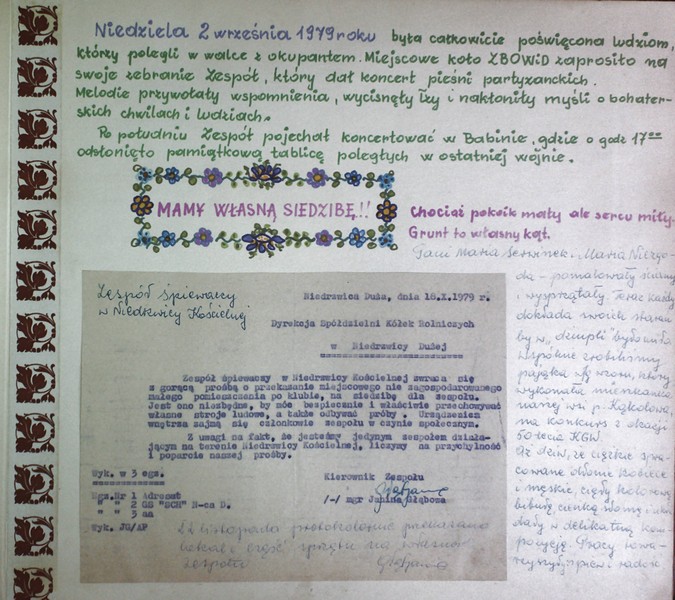 Niedziela 2 września 1979 roku była całkowicie poświęcona ludziom,
którzy polegli w walce z okupantem. Miejscowe koło ZBOWiD zaprosiło na
swoje zebranie Zespół, który dał koncert pieśni partyzanckich.
Melodie przywołały wspomnienia, wycisnęły łzy i nakłoniły myśli o bohater-
skich chwilach i ludziach.
Po południu Zespół pojechał koncertować w Babinie, gdzie o godz 17⁰⁰
odsłonięto pamiątkową tablicę poległych w ostatniej wojnie.
MAMY WŁASNĄ SIEDZIBĘ!!
Chociaż pokoik mały ale sercu miły.
Grunt to własny kąt.
Pani Maria , Maria Niezgo-
da - pomalowały ściany
i wysprzątały. Teraz każdy
dokłada swoich starań
by w „ " było miło
Wspólnie zrobiliśmy
pająka wzoru, który
wykonała mieszkanka
naszej wsi p. Kąkolowa,
na konkurs z okazji
50-lecia KGW.
Aż dziw, że ciężkie spra-
cowane dłonie kobiece
i męskie, cięły kolorową
bibułę, cienką słomę i ukła-
dały w delikatną kom-
pozycję. Pracy towa-
rzyszył śpiew i radość
Zespół śpiewaczy
w Niedrzwicy Kościelnej
Niedrzwica Duża, dnia 16.X.1979 r.
Dyrekcja Spółdzielni Kółek Rolniczych
w Niedrzwicy Dużej
Zespół śpiewaczy w Niedrzwicy Kościelnej zwraca się
z gorącą prośbą o przekazanie miejscowego nie zagospodarowanego
małego pomieszczenia po klubie, na siedzibę dla zespołu.
Jest ono niezbędne, by móc bezpiecznie i właściwie przechowywać
własne stroje ludowe, a także odbywać próby . Urządzeniem
wnętrza zajmą się członkowie zespołu w czynie społecznym.
Z uwagi na fakt, że jesteśmy jedynym zespołem działa-
jącym na terenie Niedrzwicy Kościelnej, liczymy na przychylność
i poparcie naszej prośby.
Wyk. w 3 egz.
Kierownik Zespołu
Egz.Nr 1 Adresat
/-/ mgr Janina Głębocka
" " 2 GS "SCH" N-ca D.
" " 3 aa
Wyk. JG/AP
22 listopada protokolarnie przekazano
lokal i część sprzętu na własność
zespołu